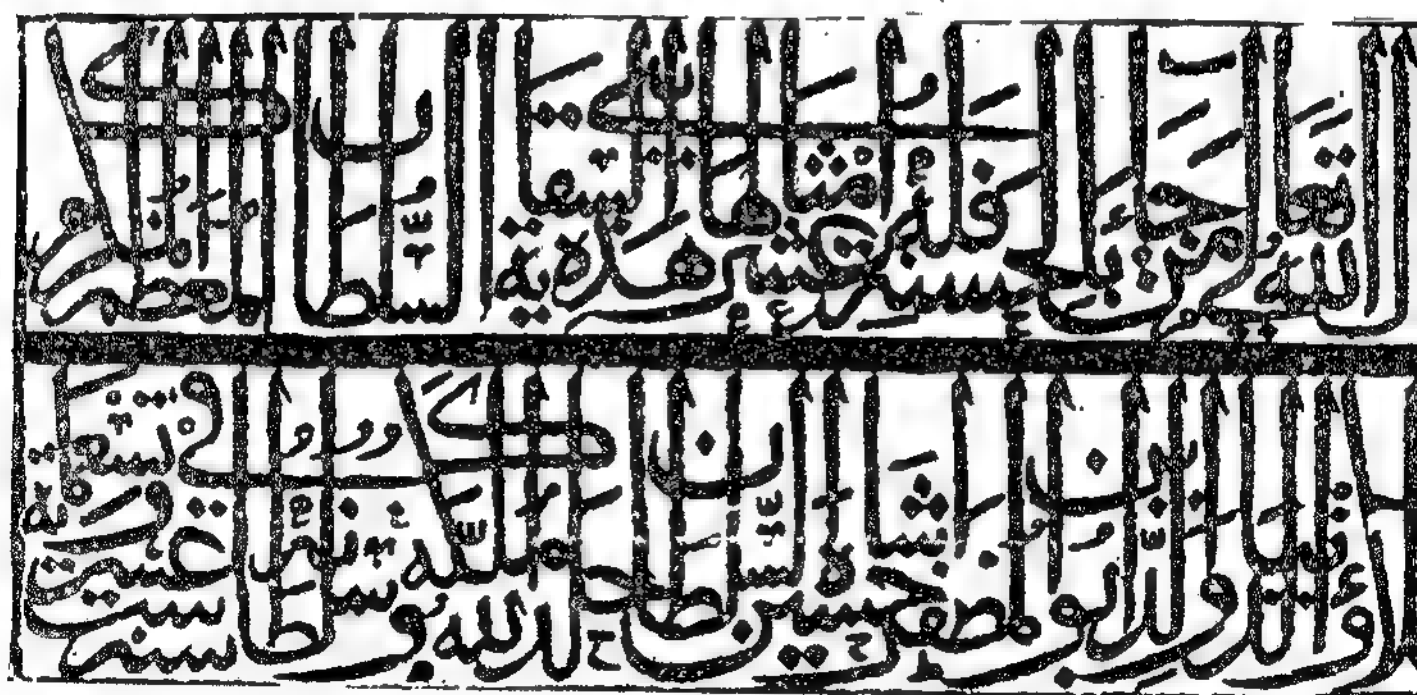 الله تعالى من جاء بالحسنة فله عشر أمثالها بنى هذه السقاية السلطان المعظم المكرم
الدنيا والدين أبو المظفر حسين شاه السلطان خلد الله ملكه وسلطانه في سنة ست عشر وتسعمائة